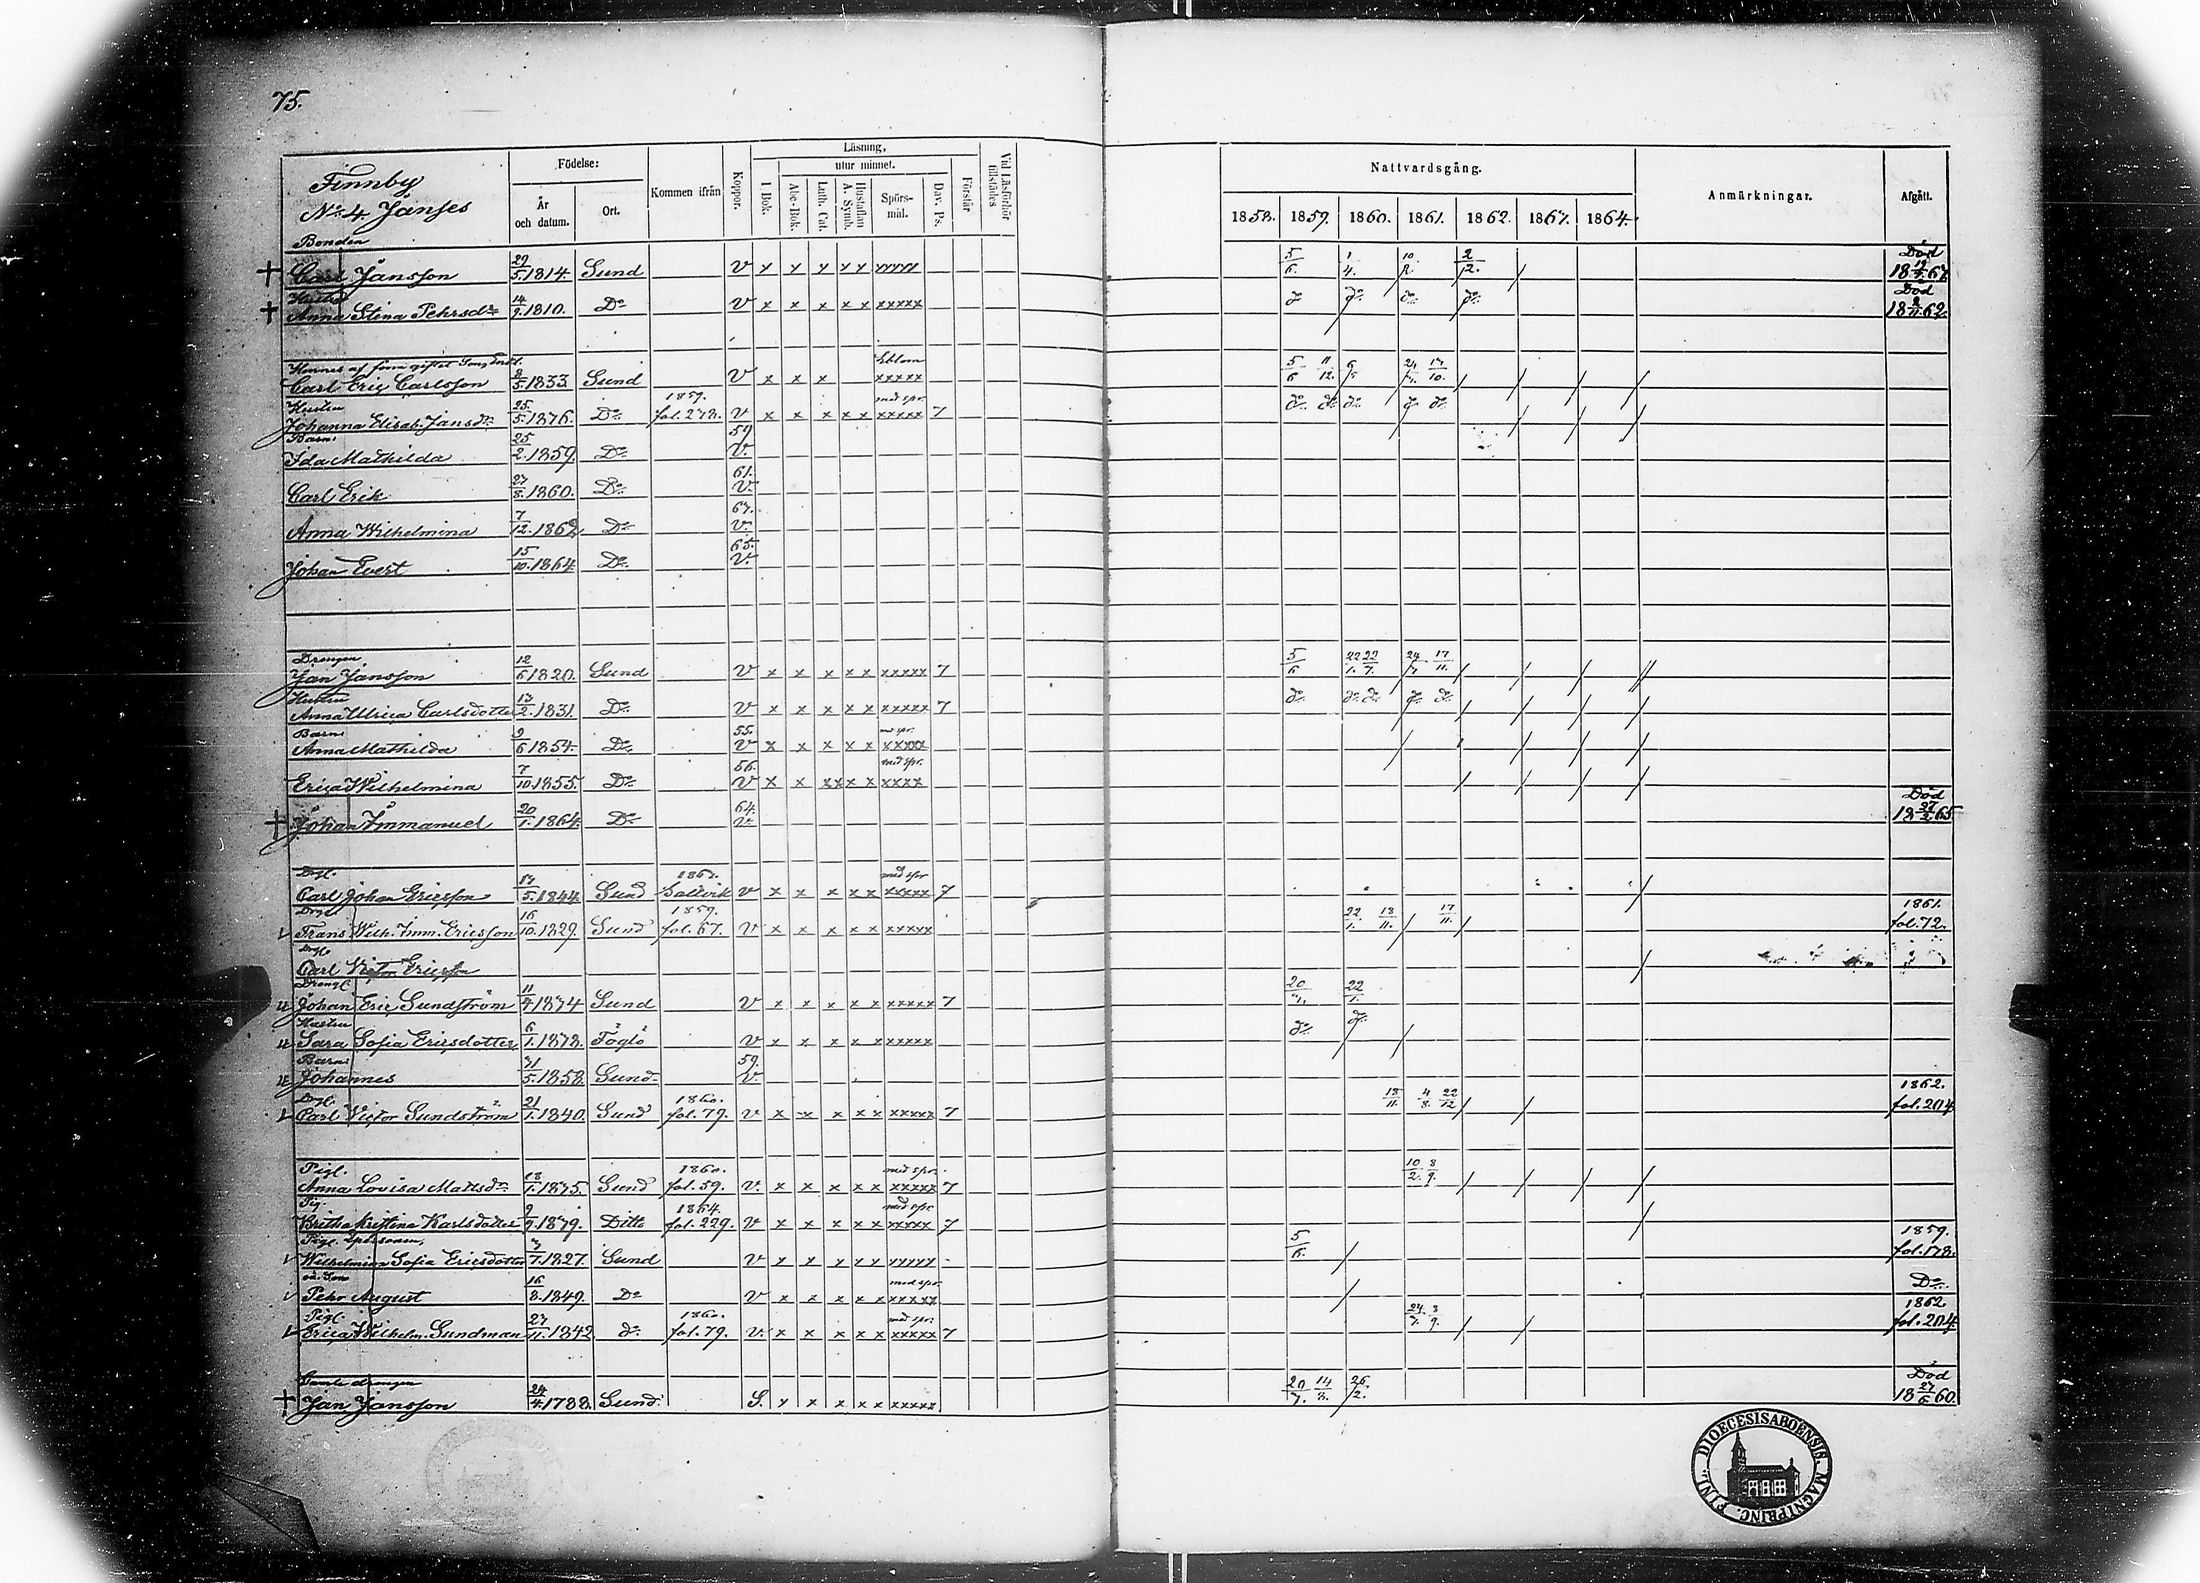 75.
Finnby
No 4. Jånses
Födelse:
År och datum.
Ort.
Kommen ifrån
Koppor.
Läsning,
I Bok.
utur minnet.
Abc-Bok.
Luth. Cat.
Hustaflan A. Symb.
Spörsmål.
Dav. Ps.
Förstår
Vid Läsförhör tillstädes
Nattvardsgång.
1858. 1859. 1860. 1861. 1862. 1863. 1864.
Anmärkningar.
Afgått.
Bonden
Carl Jånsson 29/5 1814. Sund V x x x x x xxxxx 5/6. 1/4. 10/2. 2/2. Död
Hustru
Anna Stina Pehrsdr 14/9 1810. Do V x x x x x xxxxx do do do do Död 62.
Carl Eric Carlsson 8/5 1833. Sund V x x x xxxxx 5/6 11/12.
Hustru 1859. med spr.
Johanna Elisab. Jansdr 25/5 1836. Do fol. 278. V x x x x x xxxxx 7 do do do do do
Barn: 59.
Ida Mathilda 25/2 1859. Do V.
61.
Carl Erik 27/8 1860. Do V.
63.
Anna Wilhelmina 7/12 1862. Do V.
65.
Johan Evert 15/10 1864. Do V.
Drängen
Jan Jansson 12/6 1820. Sund V x x x x x xxxxx 7 5/6 22/1. 22/7. 24/7 17/11.
Hustru
Anna Ulrica Carlsdotter 13/2 1831. Do V x x x x x xxxxx 7 do do do do do
Barn: 55. med spr.
Anna Mathilda 9/6 1854. Do V x x x x x xxxxx
56. med spr.
Erica Wilhelmina 7/10 1855. Do V x x xx x x xxxx
64.
Johan Immanuel 20/1 1864. Do V. Död 27/2 65
Drgl. 1863. med spr
Carl Johan Ericsson 13/5 1844. Sund V x x x x x xxxxx 7
Drgl. 1859. 1861.
Frans Wilh. Imm. Ericsson 16/10 1829. Sund fol. 67. V x x x x x xxxxx 22/1. 18/11. 17/11. fol. 72.
Drgl.
Carl Victor Ericsson
Drängl.
Johan Eric Sundström 11/4 1834 Sund V x x x x x xxxxx 7 22/1.
Hustru
Sara Sofia Ericsdotter 6/1 1838. Föglö V x x x x x xxxxx do do
Barn: 59.
Johannes 31/5 1858. Sund V.
Drgl. 1860. 1862.
Carl Victor Sundström 21/1 1840. Sund fol. 79. V x x x x x xxxxx 7 18/11. 4/8. 22/12 fol. 204
Pigl. 1860. med spr.
Anna Lovisa Mattsdr 18/1 1835. Sund fol. 59. V. x x x x x xxxxx 7 10/2. 8/9.
Pig. 1864. med spr
Britha Kristina Karlsdotter 9/9 1839. Ditto fol. 229. V x x x x x xxxxx 7
Pigl. 1859.
Wilhelmina Sofia Ericsdotter 3/7 1827. Sund V x x x x x xxxxx 5/6. fol. 178.
med spr.
Pehr August 16/8 1849. Do V x x x x x xxxxx Do
Pigl. 1860. med spr. 1862
Erica Wilhelm. Sundman 27/11 1842 do fol. 79. V. x x x x x xxxxx 7 24/7. 8/9. fol. 204.
Gamle drängen
Jan Jansson 24/4 1788. Sund. S. x x x x x xxxxx 20/7. 14/8. 26/2. Död 18 27/6 60.
DIOECESIS ABOENSIS. MAGNI PRINC. FINL.